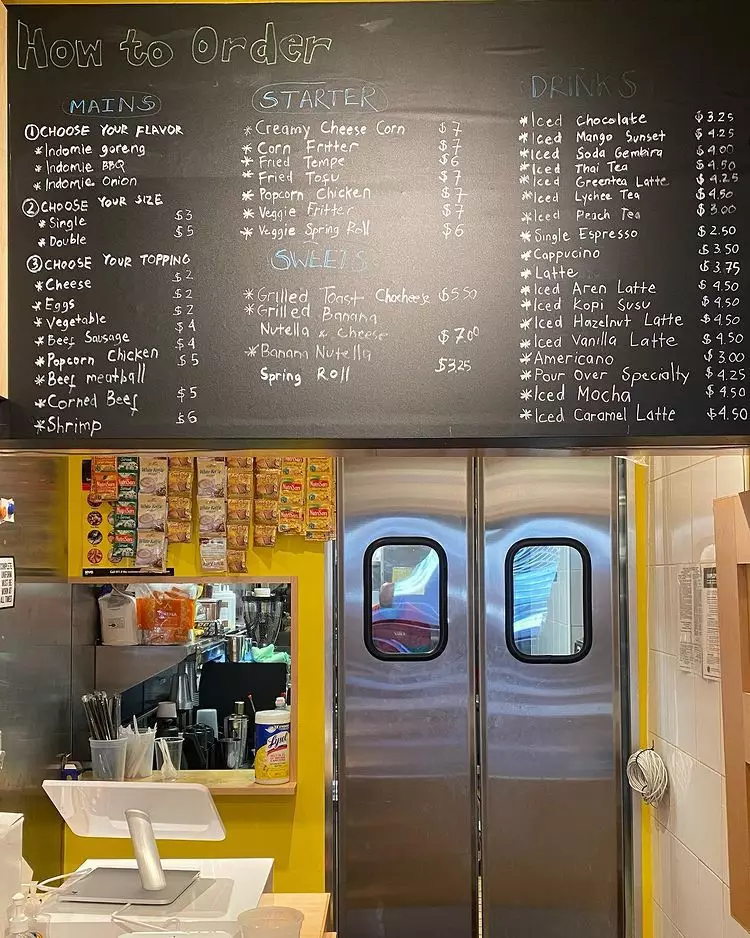 How to Order
MAINS
① CHOOSE YOUR FLAVOR
* Indomie goreng
* Indomie BBQ
* Indomie Onion
② CHOOSE YOUR SIZE
* Single $3
* Double $5
③ CHOOSE YOUR TOPPING
* Cheese $2
* Eggs $2
* Vegetable $2
* Beef Sausage $4
* Popcorn Chicken $4
* Beef meatball $5
* Corned Beef $5
* Shrimp $6
STARTER
* Creamy Cheese Corn $7
* Corn Fritter $7
* Fried Tempe $6
* Fried Tofu $7
* Popcorn Chicken $7
* Veggie Fritter $7
* Veggie Spring Roll $6
SWEETS
* Grilled Toast Chocheese $5.50
* Grilled Banana
Nutella & cheese $7.00
* Banana Nutella
Spring Roll $3.25
DRINKS
* Iced Chocolate $3.25
* Iced Mango Sunset $4.25
* Iced Soda Gembira $4.00
* Iced Thai Tea $4.50
* Iced Greentea Latte $4.25
* Iced Lychee Tea $4.50
* Iced Peach Tea $3.00
* Single Espresso $2.50
* Cappucino $3.50
* Latte $3.75
* Iced Aren Latte $4.50
* Iced Kopi Susu $4.50
* Iced Hazelnut Latte $4.50
* Iced Vanilla Latte $4.50
* Americano $3.00
* Pour Over Specialty $4.25
* Iced Mocha $4.50
* Iced Caramel Latte $4.50
NutriSari
White Koffie
COMPLETE
UNIFORM
MUST BE
WORN AT
ALL TIMES
Lysol